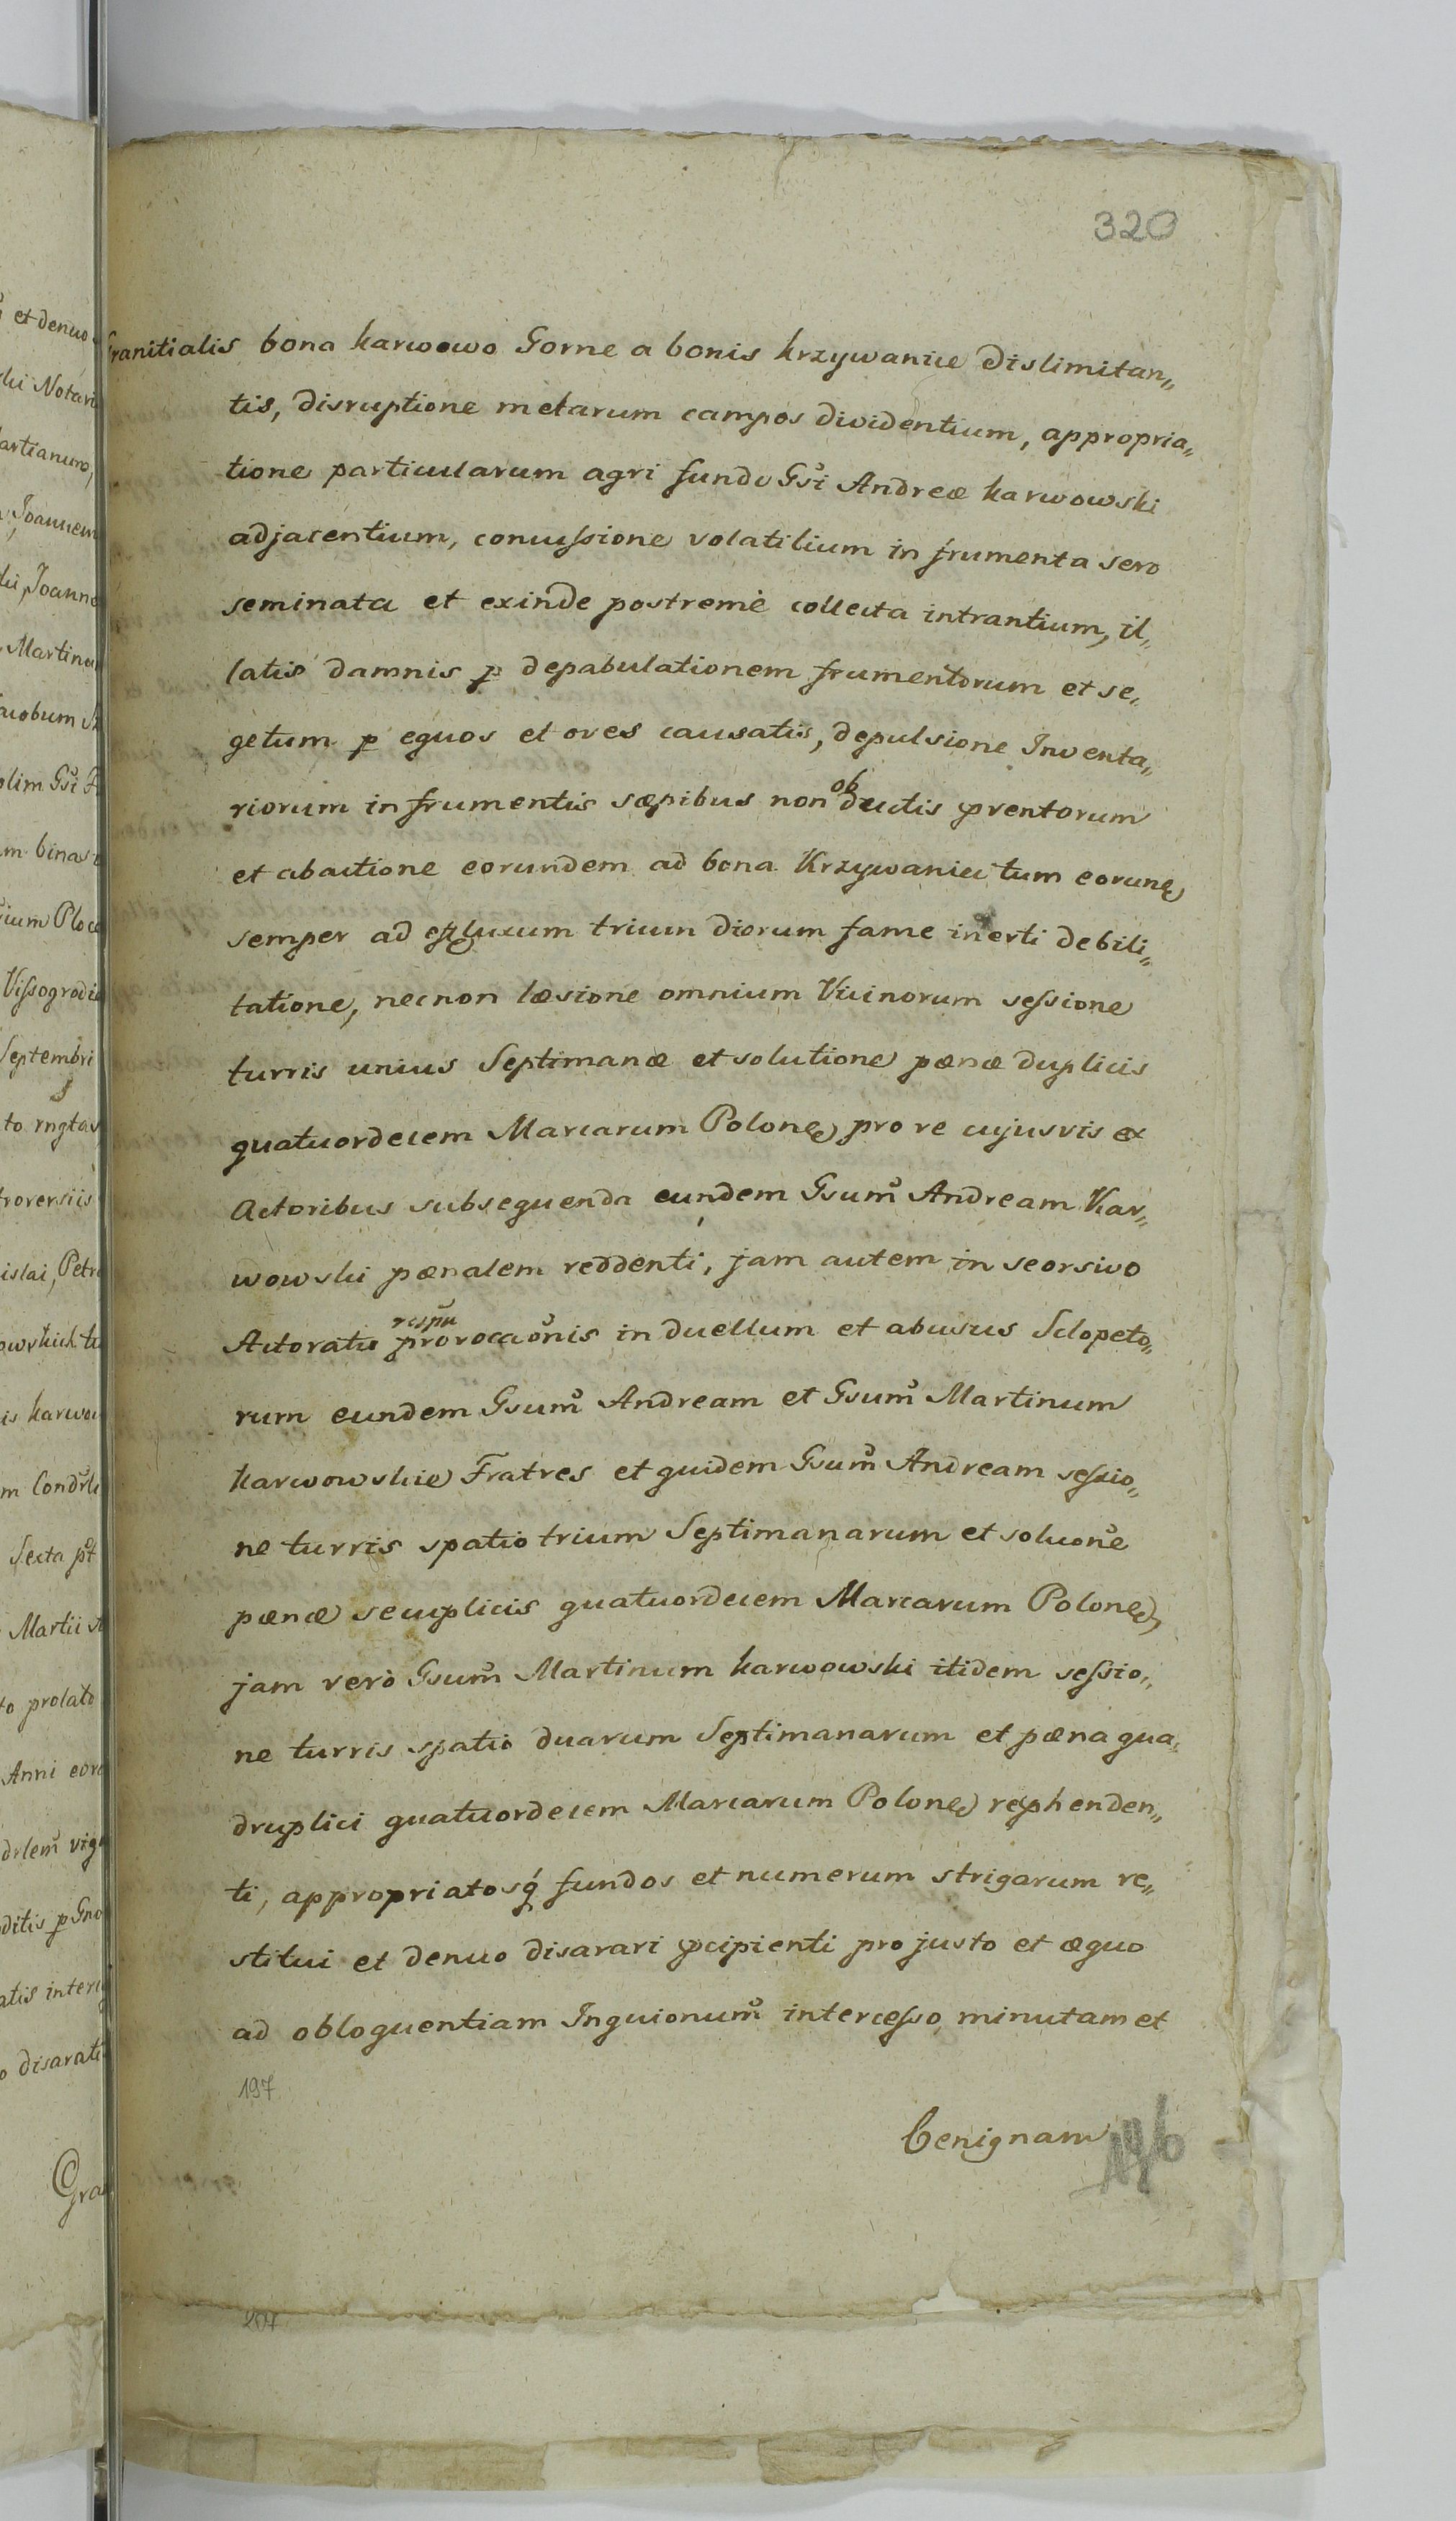 320
Granitialis bona Karwowo Gorne a bonis Krzywanice dislimitan„
tis, disruptione metarum campos dividentium, appropria„
tione particularum agri fundo Gsi Andreæ Karwowski
adjacentium, concussione volatilium in frumenta sero
seminata et exinde postremè collecta intrantium, il„
latis damnis p depabulationem frumentorum et se„
getum p equos et oves causatis, depulsione Inventa„
riorum in frumentis sæpibus non obductis prentorum
et abactione eorundem ad bona Krzywanice tum eorund
semper ad effluxum trium dierum fame inerti debili„
tatione, necnon læsione omnium Vicinorum sessione
turris unius Septimanæ et solutione pænæ duplicis
quatuordecem Marcarum Polon pro re cujusvis ex
Actoribus subsequenda eundem Gsum Andream Kar„
wowski pænalem reddenti, jam autem in seorsivo
Actoratu respu provocaonis in duellum et abusus Sclopeto„
rum eundem Gsum Andream et Gsum Martinum
Karwowskie Fratres et quidem Gsum Andream sessio„
ne turris spatio trium Septimanarum et soluone
pænæ sexcuplicis quatuordecem Marcarum Polon,
jam verò Gsum Martinum Karwowski itidem sessio„
ne turris spatio duarum Septimanarum et pæna qua„
druplici quatuordecem Marcarum Polon rephenden„
ti, appropriatosq fundos et numerum strigarum re„
stitui et denuo disarari pcipienti pro justo et æquo
ad obloquentiam Inquionum intercesso, minutam et
197
benignam
196
207